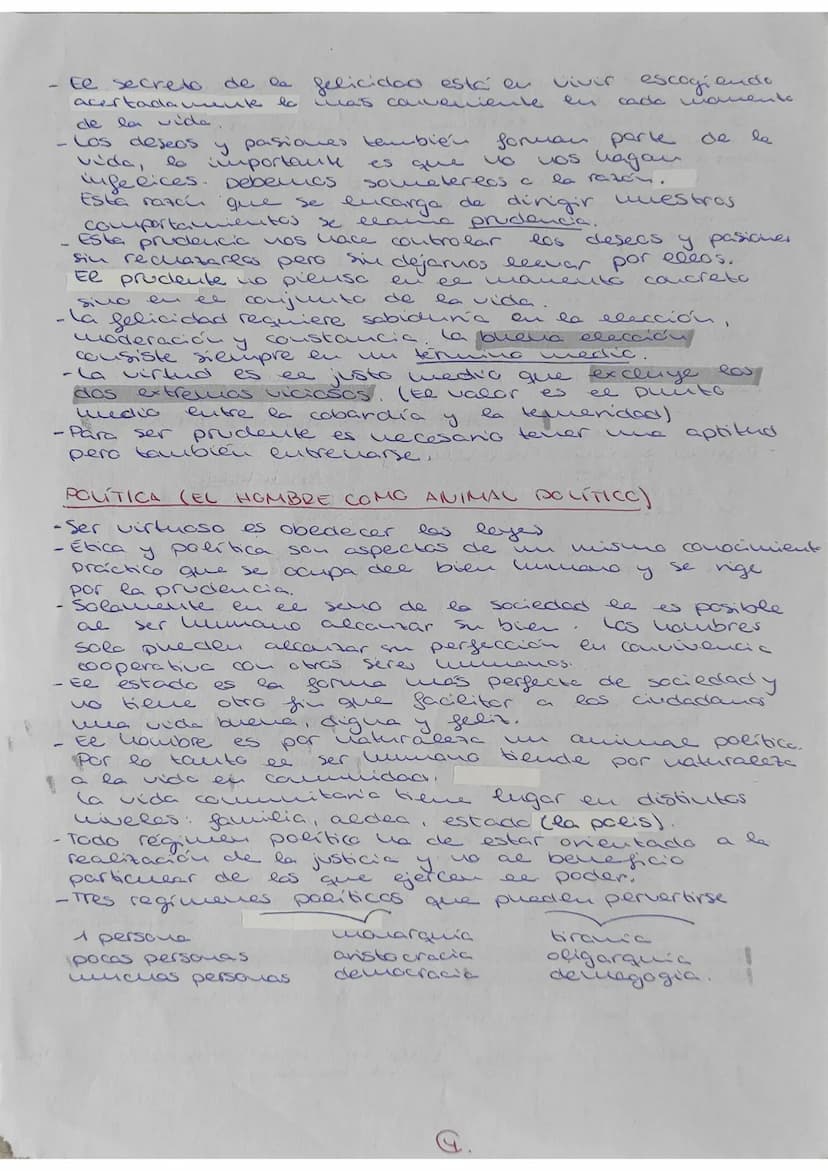 - El secreto de la felicidad está en vivir escogiendo
acertadamente lo más conveniente en cada momento
de la vida.
- Los deseos y pasiones también forman parte de la
vida, lo importante es que no nos hagan
infelices. Debemos someterlos a la razón.
Esta razón que se encarga de dirigir nuestros
comportamientos se llama prudencia.
- Esta prudencia nos hace controlar los deseos y pasiones
sin rechazarlos pero sin dejarnos llevar por ellos.
El prudente no piensa en el momento concreto
sino en el conjunto de la vida.
- La felicidad requiere sabiduría en la elección,
moderación y constancia. La buena elección
consiste siempre en un término medio.
- La virtud es el justo medio que excluye los
dos extremos viciosos. (El valor es el punto
medio entre la cobardía y la temeridad)
- Para ser prudente es necesario tener una aptitud
pero también entrenarse.
POLÍTICA (EL HOMBRE COMO ANIMAL POLÍTICO)
- Ser virtuoso es obedecer las leyes
- Ética y política son aspectos de un mismo conocimiento
práctico que se ocupa del bien humano y se rige
por la prudencia.
- Solamente en el seno de la sociedad le es posible
al ser humano alcanzar su bien. Los hombres
solo pueden alcanzar su perfección en convivencia
cooperativa con otros seres humanos.
- El estado es la forma más perfecta de sociedad y
no tiene otro fin que facilitar a los ciudadanos
una vida buena, digna y feliz.
- El hombre es por naturaleza un animal político.
Por lo tanto el ser humano tiende por naturaleza
a la vida en comunidad.
La vida comunitaria tiene lugar en distintos
niveles: familia, aldea, estado (la polis).
- Todo régimen político ha de estar orientado a la
realización de la justicia y no al beneficio
particular de los que ejercen el poder.
- Tres regímenes políticos que pueden pervertirse
1 persona monarquía tiranía
pocas personas aristocracia oligarquía
muchas personas democracia demagogia.
4.